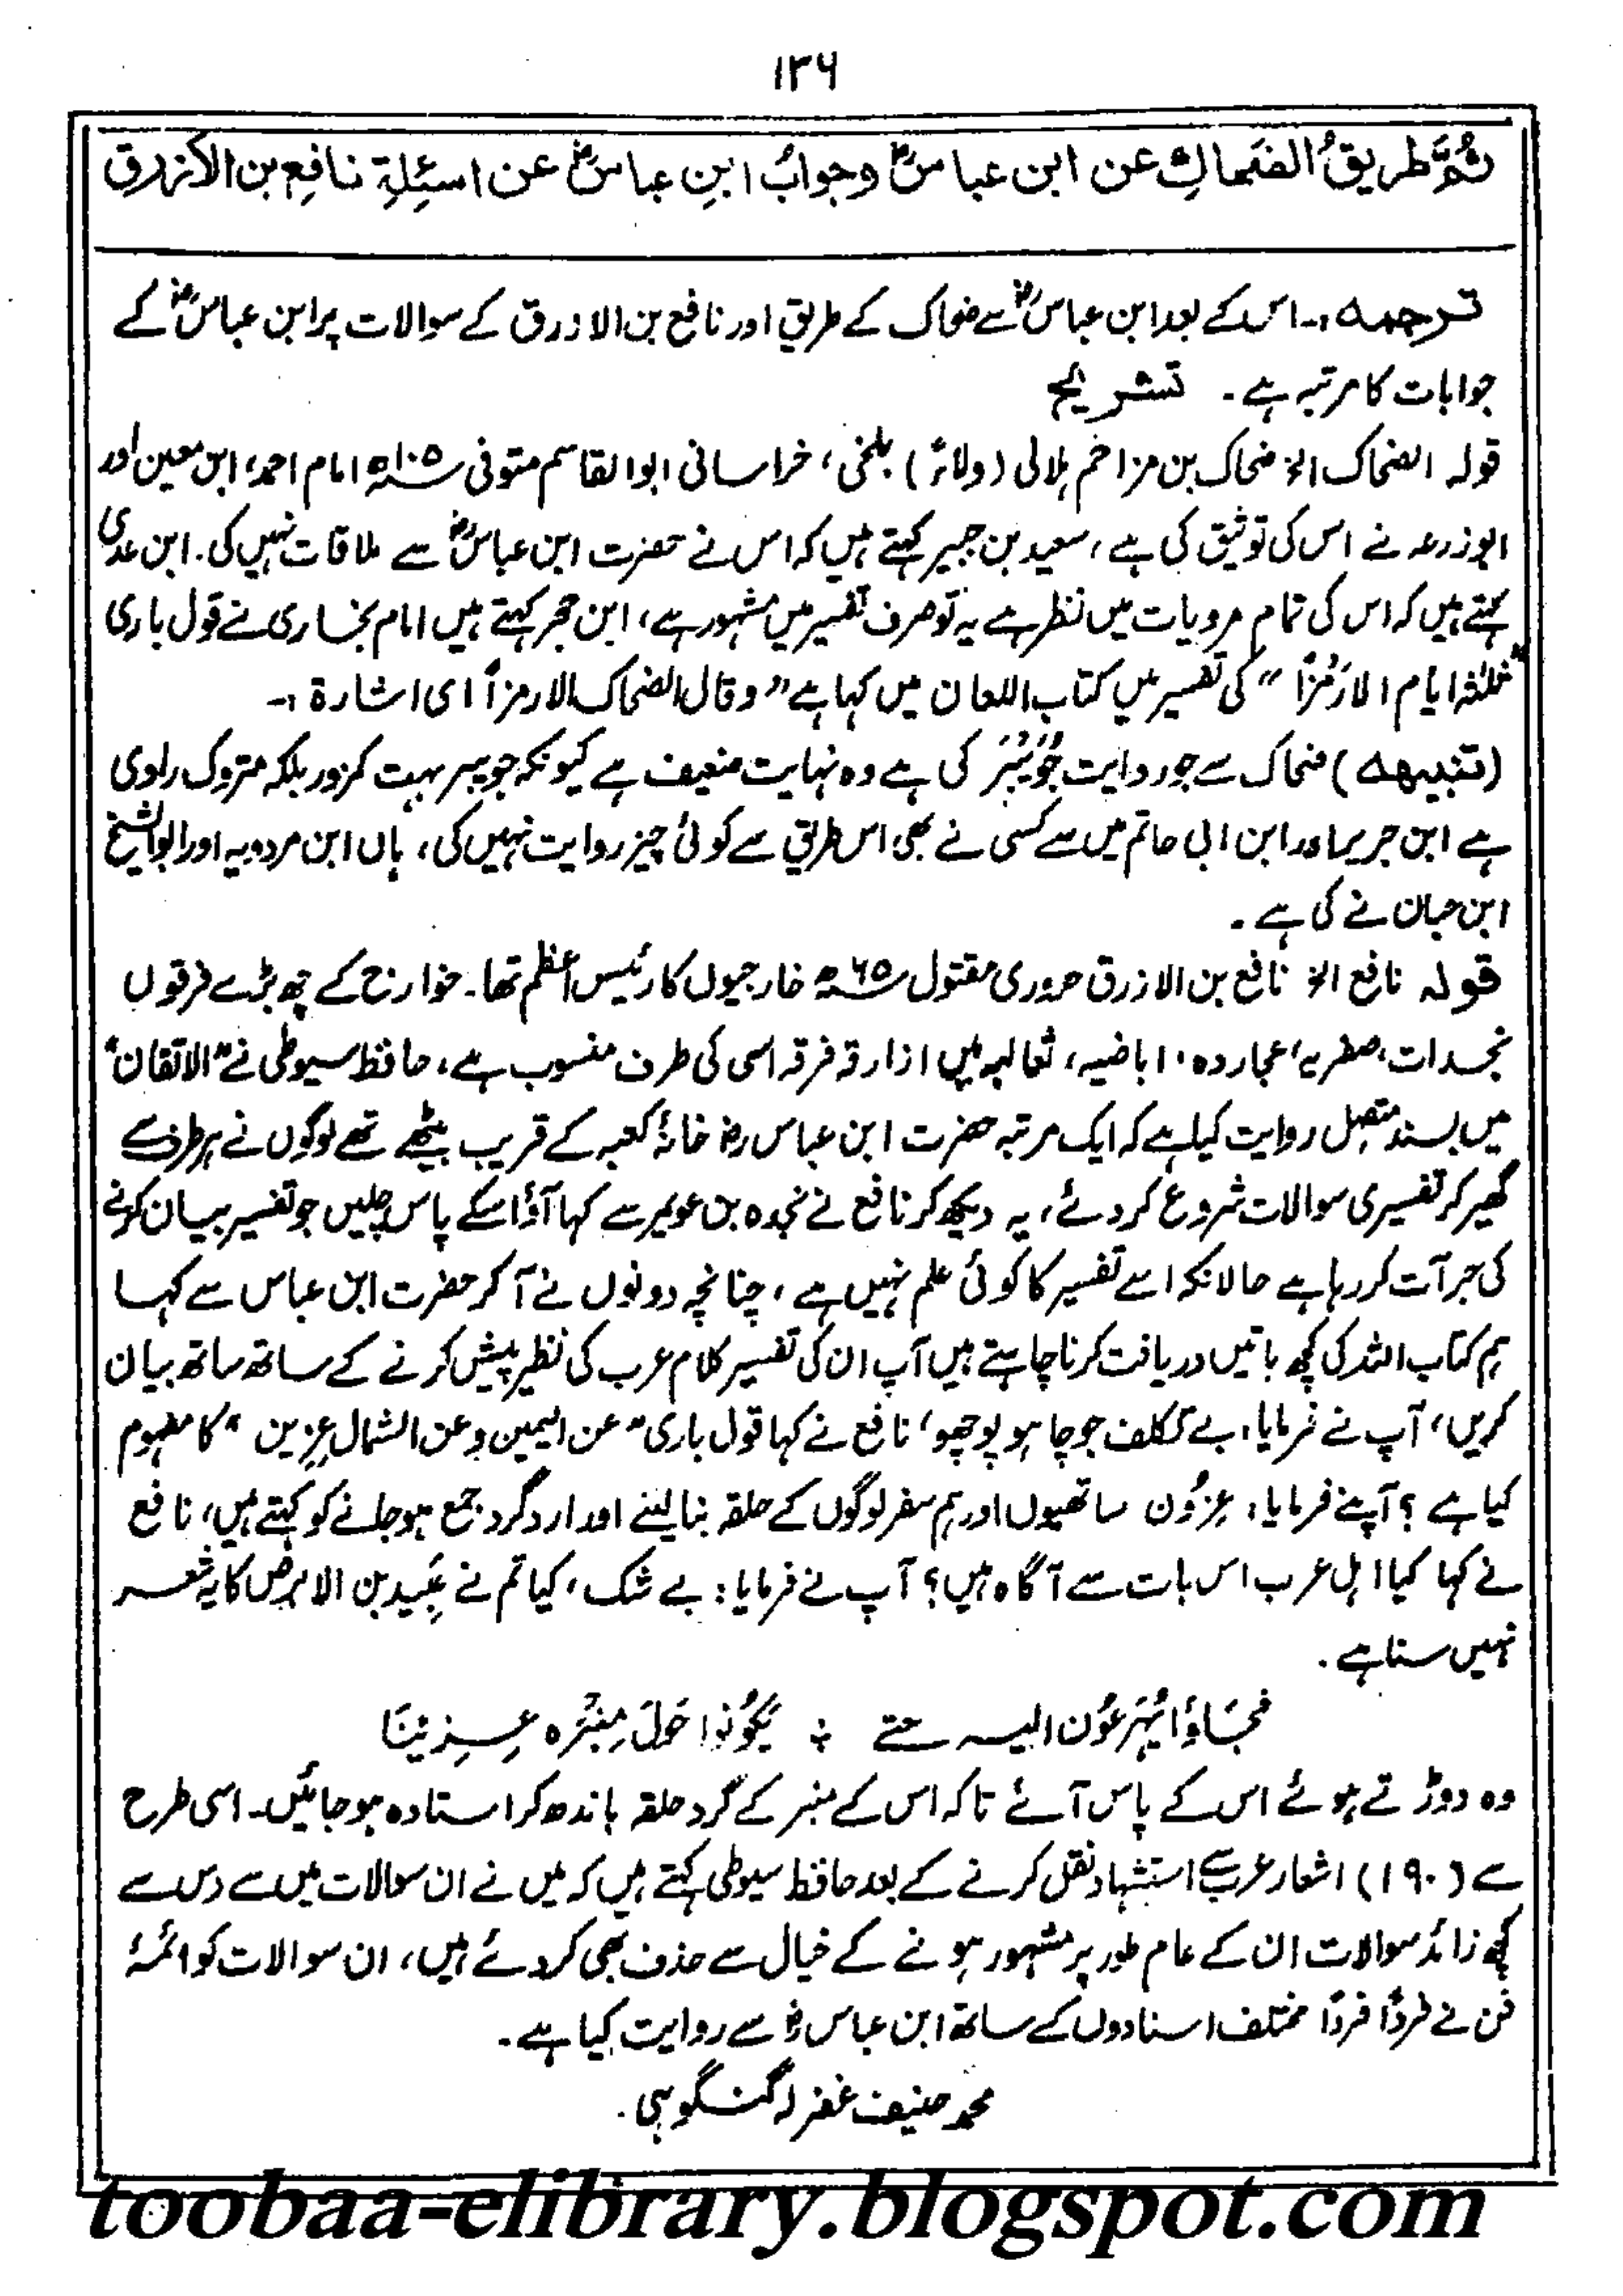 ۱۳۶
ثُمَّ طریقُ الضحاکِ عن ابن عباسؓ وجوابُ ابنِ عباسؓ عن اسئِلةِ نافعِ بن الازرق
ترجمہ:۔ اس کے بعد ابن عباسؓ سے ضحاک کے طریق اور نافع بن الازرق کے سوالات پر ابن عباسؓ کے
جوابات کا مرتبہ ہے ۔ تشریح
قولہ الضحاک الخ ضحاک بن مزاحم ہلالی (ولاءً) بلخی، خراسانی ابوالقاسم متوفی ۱۰۵ھ امام احمد، ابن معین اور
ابوزرعہ نے اس کی توثیق کی ہے، سعید بن جبیر کہتے ہیں کہ اس نے حضرت ابن عباسؓ سے ملاقات نہیں کی۔ ابن عدی
کہتے ہیں کہ اس کی تمام مرویات میں نظر ہے یہ تو صرف تفسیر میں مشہور ہے، ابن حجر کہتے ہیں امام بخاری نے قول باری
"ثلثۃ ایام الا رَمْزًا" کی تفسیر میں کتاب اللعان میں کہا ہے" وقال الضحاک الا رمزاً ای اشارۃ :۔
(تنبیہہ) ضحاک سے جو روایت جُوَیْبِر کی ہے وہ نہایت ضعیف ہے کیونکہ جویبر بہت کمزور بلکہ متروک راوی
ہے ابن جریر اور ابن ابی حاتم میں سے کسی نے بھی اس طریق سے کوئی چیز روایت نہیں کی، ہاں ابن مردویہ اور ابوالشیخ
ابن حبان نے کی ہے ۔
قولہ نافع الخ نافع بن الازرق حروری مقتول ۶۵ھ خارجیوں کا رئیس اعظم تھا۔ خوارج کے چھ بڑے فرقوں
نجدات، صفریہ، عجاردہ، اباضیہ، ثعالبہ میں ازارقہ فرقہ اسی کی طرف منسوب ہے، حافظ سیوطی نے "الاتقان"
میں بسند متصل روایت کیا ہے کہ ایک مرتبہ حضرت ابن عباس رض خانۂ کعبہ کے قریب بیٹھے تھے لوگوں نے ہر طرف سے
گھیر کر تفسیری سوالات شروع کر دئے، یہ دیکھ کر نافع نے نجدہ بن عویمر سے کہا آؤ اسکے پاس چلیں جو تفسیر بیان کرنے
کی جرآت کر رہا ہے حالانکہ اسے تفسیر کا کوئی علم نہیں ہے، چنانچہ دونوں نے آ کر حضرت ابن عباس سے کہا
ہم کتاب اللہ کی کچھ باتیں دریافت کرنا چاہتے ہیں آپ ان کی تفسیر کلام عرب کی نظیر پیش کرنے کے ساتھ ساتھ بیان
کریں، آپ نے فرمایا: بے تکلف جو چاہو پوچھو، نافع نے کہا قول باری "عن الیمین وعن الشمال عِزِین" کا مفہوم
کیا ہے ؟ آپنے فرمایا: عِزُون ساتھیوں اور ہم سفر لوگوں کے حلقہ بنا لینے اور ارد گرد جمع ہو جانے کو کہتے ہیں، نافع
نے کہا کیا اہل عرب اس بات سے آگاہ ہیں؟ آپ نے فرمایا: بے شک، کیا تم نے عَبِید بن الابرص کا یہ شعر
نہیں سنا ہے ۔
فَجَاؤا یُہْرَعُون الیہ حتے ؞ یَکُوْنُوا حَولَ مِنبَرِہ عِزِیْنَا
وہ دوڑتے ہوئے اس کے پاس آئے تاکہ اس کے منبر کے گرد حلقہ باندھ کر استادہ ہو جائیں۔ اسی طرح
سے (۱۹۰) اشعار عرب سے استشہاد نقل کرنے کے بعد حافظ سیوطی کہتے ہیں کہ میں نے ان سوالات میں سے دس سے
کچھ زائد سوالات ان کے عام طور پر مشہور ہونے کے خیال سے حذف بھی کر دئے ہیں، ان سوالات کو ائمۂ
فن نے فرداً فرداً مختلف اسنادوں کے ساتھ ابن عباس رض سے روایت کیا ہے ۔
محمد حنیف غفرلہ گنگوہی ۔
toobaa-elibrary.blogspot.com